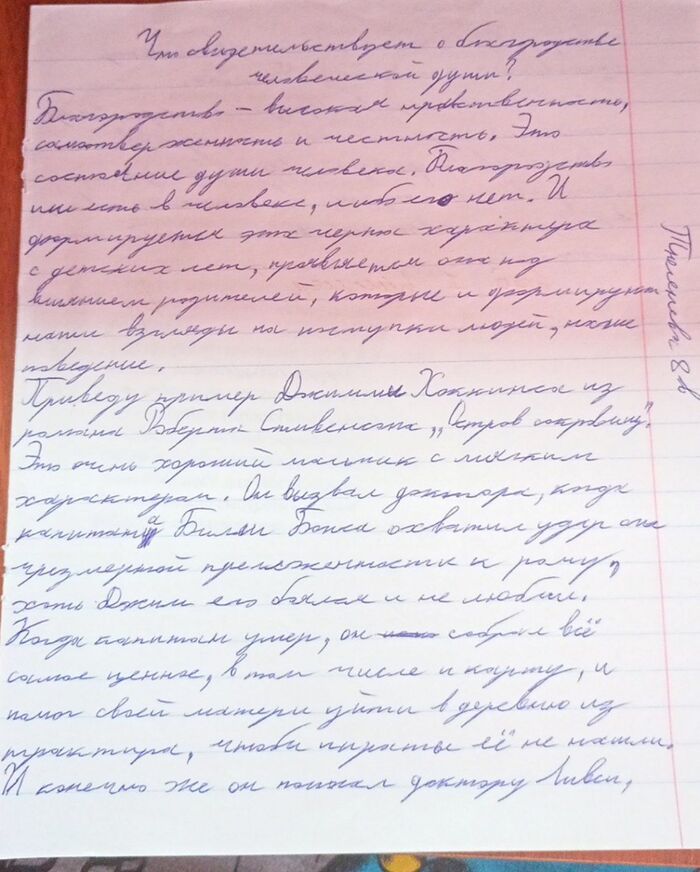 Что свидетельствует о благородстве
человеческой души?
Благородство – высокая нравственность,
самоотверженность и честность. Это
состояние души человека. Благородство
или есть в человеке, либо его нет. И
формируется эта черта характера
с детских лет, проявляется она под
влиянием родителей, которые и формируют
наши взгляды на поступки людей, наше
поведение.
Приведу пример Джимми Хоккинса из
романа Роберта Стивенсона „Остров сокровищ".
Это очень хороший мальчик с мягким
характером. Он вызвал доктора, когда
капитана Билли Бонса охватил удар от
чрезмерной приложенности к рому,
хоть Джим его боялся и не любил.
Когда капитан умер, он собрал всё
самое ценное, в том числе и карту, и
помог своей матери уйти в деревню из
трактира, чтобы пираты её не нашли.
И конечно же он помогал доктору Ливси,
8 в